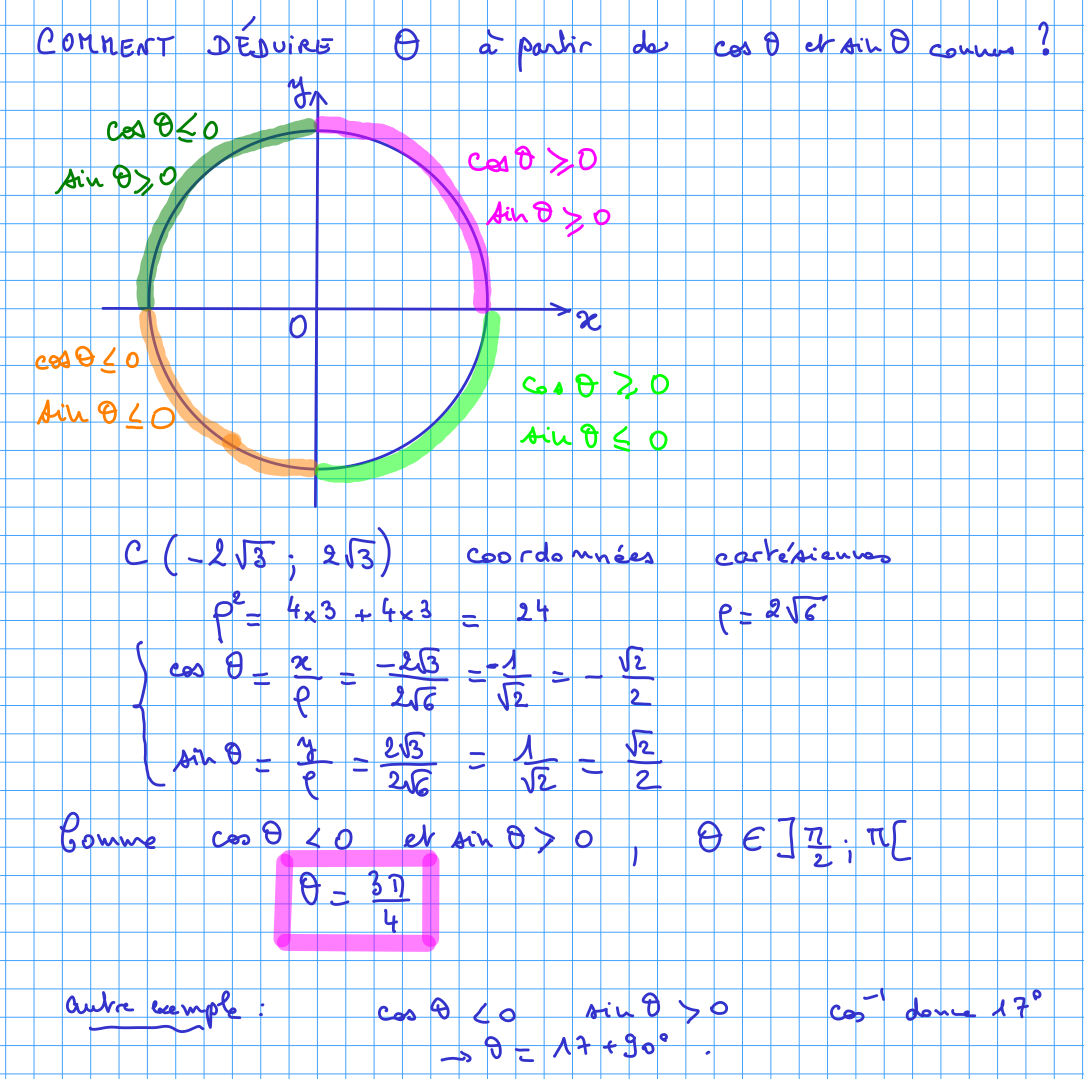 COMMENT DÉDUIRE θ à partir de cos θ et sin θ connus ?
y
cos θ ≤ 0
sin θ ⩾ 0
cos θ ⩾ 0
sin θ ⩾ 0
O
x
cos θ ≤ 0
sin θ ≤ 0
cos θ ⩾ 0
sin θ ≤ 0
C (-2√3 ; 2√3) coordonnées cartésiennes
ρ² = 4×3 + 4×3 = 24 ρ = 2√6
cos θ = x/ρ = -2√3/2√6 = -1/√2 = - √2/2
sin θ = y/ρ = 2√3/2√6 = 1/√2 = √2/2
Comme cos θ < 0 et sin θ > 0 , θ ∈ ]π/2 ; π[
θ = 3π/4
autre exemple : cos θ < 0 sin θ > 0 cos⁻¹ donne 17°
→ θ = 17 + 90° .